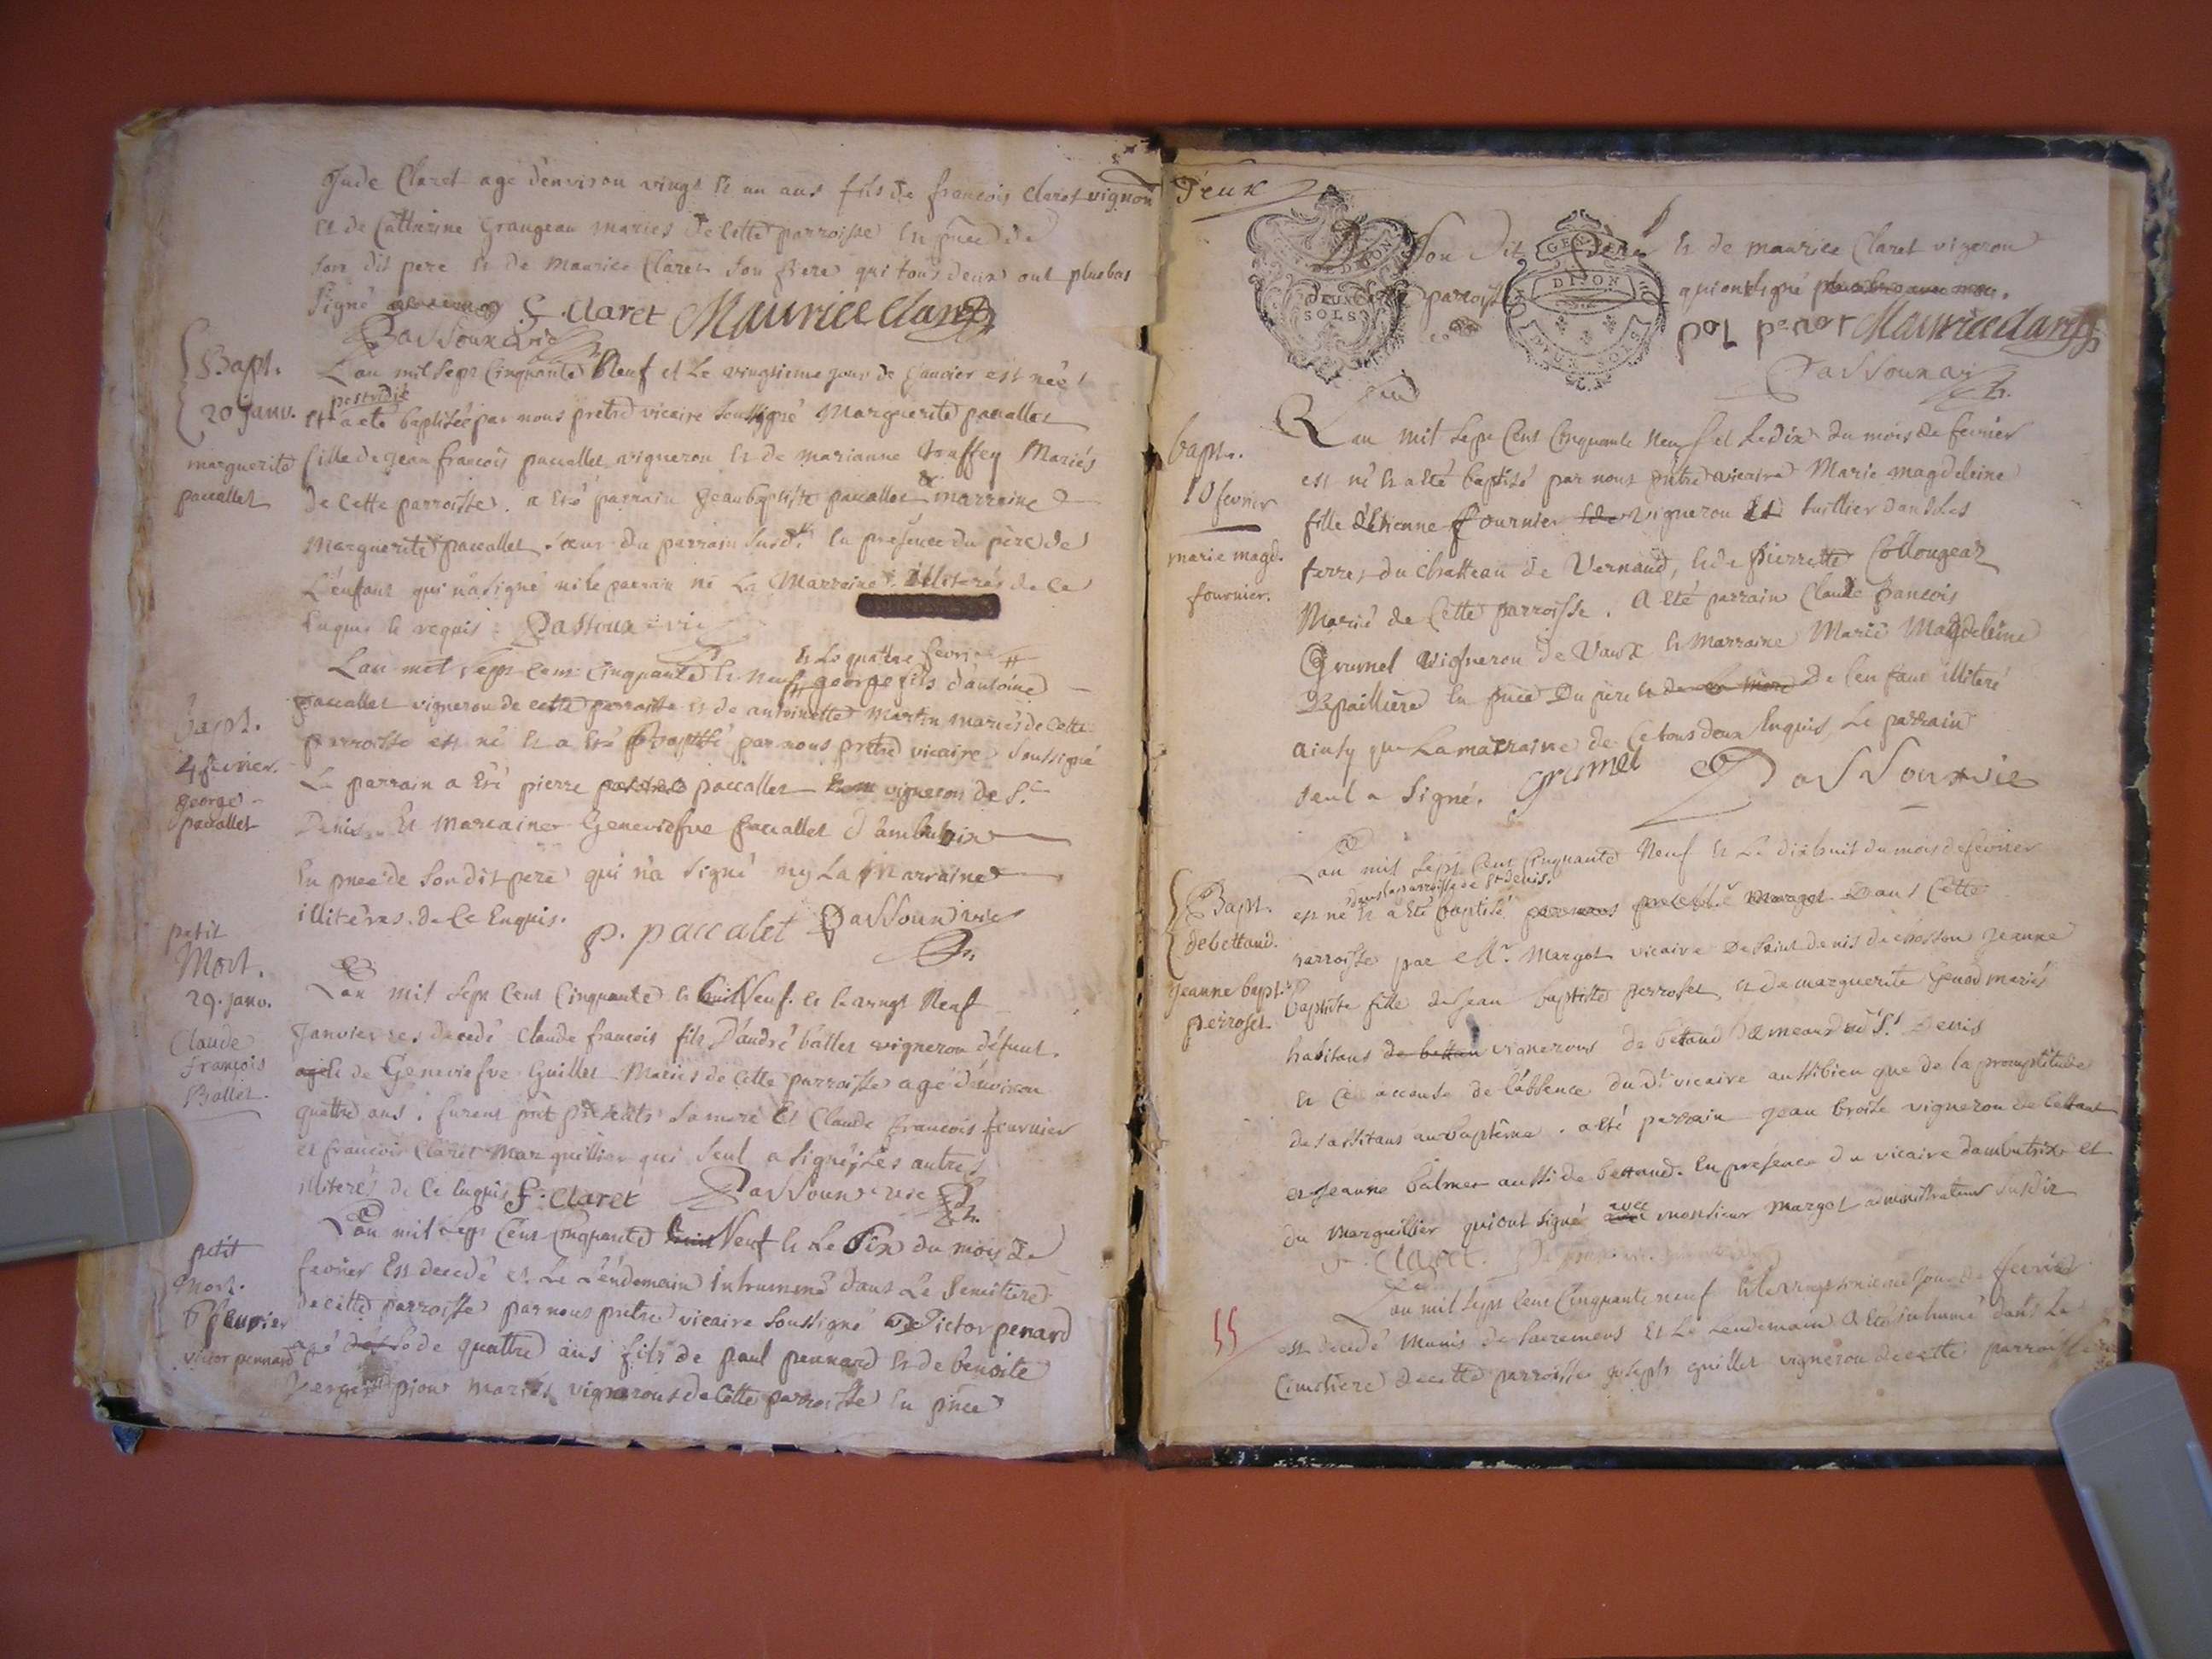 Jude Claret agé d'environ vingt et un ans fils de francois Claret vigñon
et de Catherine Grangean mariés de cette parroisse en pñce de
son dit pere et de Maurice Claret son frere qui tous deux ont plus bas
signé F. Claret Maurice Claret
Passoux vic
Bapt.
20 janv.
marguerite
paccallet
L'an mil sept Cinquante Neuf et Le vingtieme jour de Janvier est née
postridie
et a eté baptisée par nous prêtre vicaire soussigné Marguerite paccallet
fille de jean francois paccallet vigneron et de marianne Mariés
de Cette parroisse. a eté parrain Jean baptiste paccallet & marraine
Marguerite paccallet. soeur du parrain susdt. En présence du père de
L'enfant qui n'a signé ni le parrain ni La Marraine illiterés de ce
Enquis et requis. Passoux vic
et Le quattre fevrier
L'an mil sept cent Cinquante et Neuf george fils d'antoine
paccallet vigneron de cette parroisse et de antoinette Martin mariés de cette
Bapt.
4 fevrier.
george
paccallet
parroisse est né et a eté Baptisé par nous prêtre vicaire Soussigné
Le parrain a eté pierre paccallet vigneron de St.
Denis. Et Marraine Geneviefve paccallet d'ambutrix
En pnce de Son dit pere qui n'a signé ny La Marraine
illiterés de Ce Enquis. p. paccalet Passoux vic
petit
Mort.
29. janv.
Claude
François
Ballet.
L'an mil sept Cent Cinquante et Neuf. et le vingt Neuf
Janvier est decedé Claude francois fils D'andré ballet vigneron défunt.
et de Geneviefve Guillet Mariés de Cette parroisse agé d'environ
quattre ans. furent présents sa mere et Claude francois fournier
et francois Claret Marguillier qui seul a signé, Les autres
illiterés de Ce Enquis F. Claret Passoux vic
petit
Mort.
6 feuvrier
victor pennard
L'an mil sept Cent Cinquante Neuf et Le Six du mois de
fevrier Est decedé et Le Lendemain inhummé dans Le Semitiere
de cette parroisse par nous prêtre vicaire soussigné Victor penard
agé de quattre ans fils de paul pennard et de benoite
pjour mariés vignerons de Cette parroisse en pñce
Deux
Son Dit Pere et de maurice Claret vigeron
DIJON
DEUX
SOLS
GEN
DIJON
parroisse qui ont signé
pol penar Maurice Claret
Passoux vic
bapt.
10 fevrier
marie magd.
fournier.
L'an mil sept Cent Cinquante Neuf et Le dix du mois de fevrier
est né et a eté baptisé par nous prêtre vicaire Marie magdeleine
fille d'Etienne fournier vigneron tuillier dans Les
terres du chatteau de Vernaud, et de pierrette Collougeaz
Marié de Cette parroisse. A eté parrain Claude francois
Grumel vigneron de Vaux et Marraine Marie Magdeleine
Depailliere En pñce Du pere de L'enfant illiteré
ainsy que La marraine de Ce tous deux Enquis, Le parrain
seul a signé. Grumel Passoux vic
Bapt.
de bettand.
jeanne bapt.
perroset
L'an mil sept Cent Cinquante Neuf et Le dixhuit du mois de fevrier
dans la parroisse de St denis.
est né et a eté baptisé Dans Cette
parroisse par Mr. Margot vicaire De Saint denis de chosson Jeanne
baptiste fille de Jean baptiste perroset, et de marguerite Genod mariés
habitans de bettan vignerons de bétand hameaux de St. Denis
et Ce a cause de l'absence du dt vicaire aussi bien que de la promptitude
des assistans au baptême. a eté parrain jean broise vigneron de bettant
et Jeanne balmet aussi de bettand. En presence du vicaire d'ambutrix et
du Marguillier qui ont signé avec monsieur Margot administrateur susdit
F. Claret.
55
L'an mil sept Cent Cinquante neuf et le vingt jour de fevrier
est decedé Munis de sacremens et Le Lendemain A eté inhumé dans Le
Cimetiere de cette parroisse joseph guillet vigneron de cette parroisse